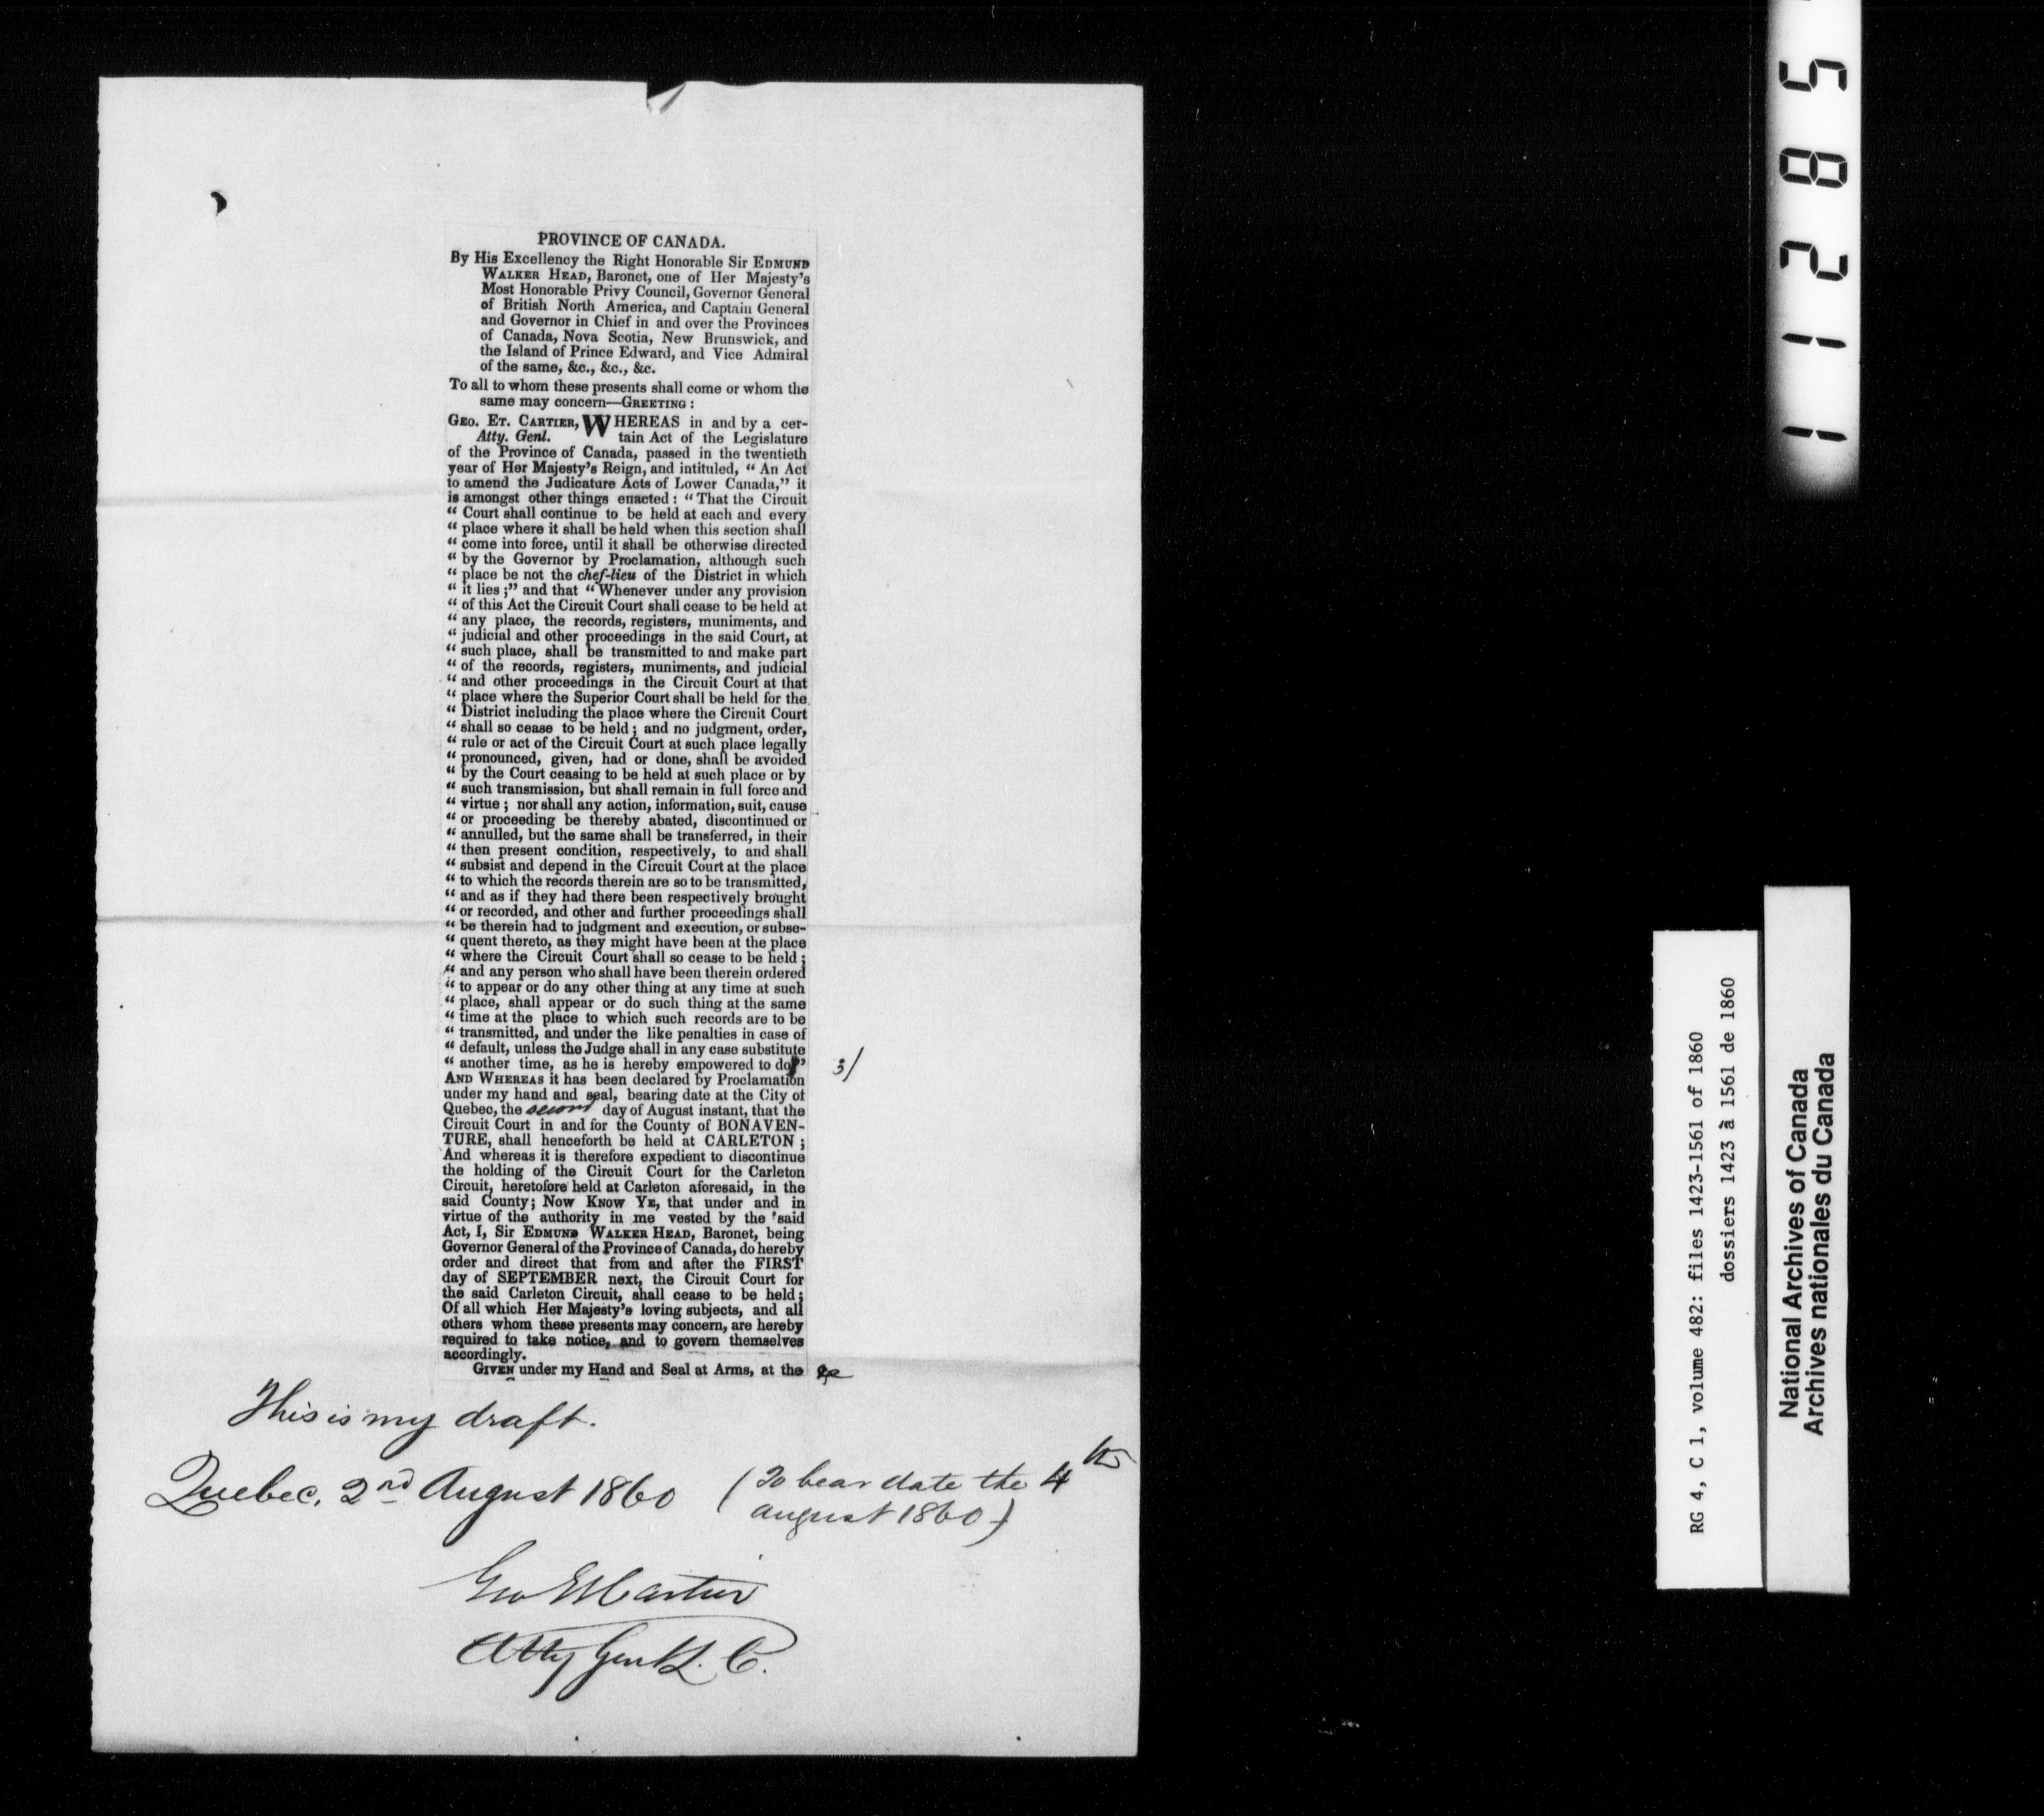 PROVINCE OF CANADA.
By His Excellency the Right Honorable Sir EDMUND
WALKER HEAD, Baronet, one of Her Majesty's
Most Honorable Privy Council, Governor General
of British North America, and Captain General
and Governor in Chief in and over the Provinces
of Canada, Nova Scotia, New Brunswick, and
the Island of Prince Edward, and Vice Admiral
of the same, &c., &c., &c.
To all to whom these presents shall come or whom the
same may concern—GREETING:
GEO. ET. CARTIER, WHEREAS in and by a cer-
Atty. Genl. tain Act of the Legislature
of the Province of Canada, passed in the twentieth
year of Her Majesty's Reign, and intituled, "An Act
to amend the Judicature Acts of Lower Canada," it
is amongst other things enacted: "That the Circuit
" Court shall continue to be held at each and every
" place where it shall be held when this section shall
" come into force, until it shall be otherwise directed
" by the Governor by Proclamation, although such
" place be not the chef-lieu of the District in which
" it lies;" and that "Whenever under any provision
" of this Act the Circuit Court shall cease to be held at
" any place, the records, registers, muniments, and
" judicial and other proceedings in the said Court, at
" such place, shall be transmitted to and make part
" of the records, registers, muniments, and judicial
" and other proceedings in the Circuit Court at that
" place where the Superior Court shall be held for the
" District including the place where the Circuit Court
" shall so cease to be held; and no judgment, order,
" rule or act of the Circuit Court at such place legally
" pronounced, given, had or done, shall be avoided
" by the Court ceasing to be held at such place or by
" such transmission, but shall remain in full force and
" virtue; nor shall any action, information, suit, cause
" or proceeding be thereby abated, discontinued or
" annulled, but the same shall be transferred, in their
" then present condition, respectively, to and shall
" subsist and depend in the Circuit Court at the place
" to which the records therein are so to be transmitted,
" and as if they had there been respectively brought
" or recorded, and other and further proceedings shall
" be therein had to judgment and execution, or subse-
" quent thereto, as they might have been at the place
" where the Circuit Court shall so cease to be held;
" and any person who shall have been therein ordered
" to appear or do any other thing at any time at such
" place, shall appear or do such thing at the same
" time at the place to which such records are to be
" transmitted, and under the like penalties in case of
" default, unless the Judge shall in any case substitute
" another time, as he is hereby empowered to do" 3/
AND WHEREAS it has been declared by Proclamation
under my hand and seal, bearing date at the City of
Quebec, the second day of August instant, that the
Circuit Court in and for the County of BONAVEN-
TURE, shall henceforth be held at CARLETON;
And whereas it is therefore expedient to discontinue
the holding of the Circuit Court for the Carleton
Circuit, heretofore held at Carleton aforesaid, in the
said County; NOW KNOW YE, that under and in
virtue of the authority in me vested by the said
Act, I, Sir EDMUND WALKER HEAD, Baronet, being
Governor General of the Province of Canada, do hereby
order and direct that from and after the FIRST
day of SEPTEMBER next, the Circuit Court for
the said Carleton Circuit, shall cease to be held;
Of all which Her Majesty's loving subjects, and all
others whom these presents may concern, are hereby
required to take notice, and to govern themselves
accordingly.
GIVEN under my Hand and Seal at Arms, at the
This is my draft.
Quebec, 2nd August 1860 (To bear date the 4th
august 1860)
Geo Et Cartier
Atty Genl L. C.
11285
RG 4, C 1, volume 482: files 1423-1561 of 1860
dossiers 1423 à 1561 de 1860
National Archives of Canada
Archives nationales du Canada